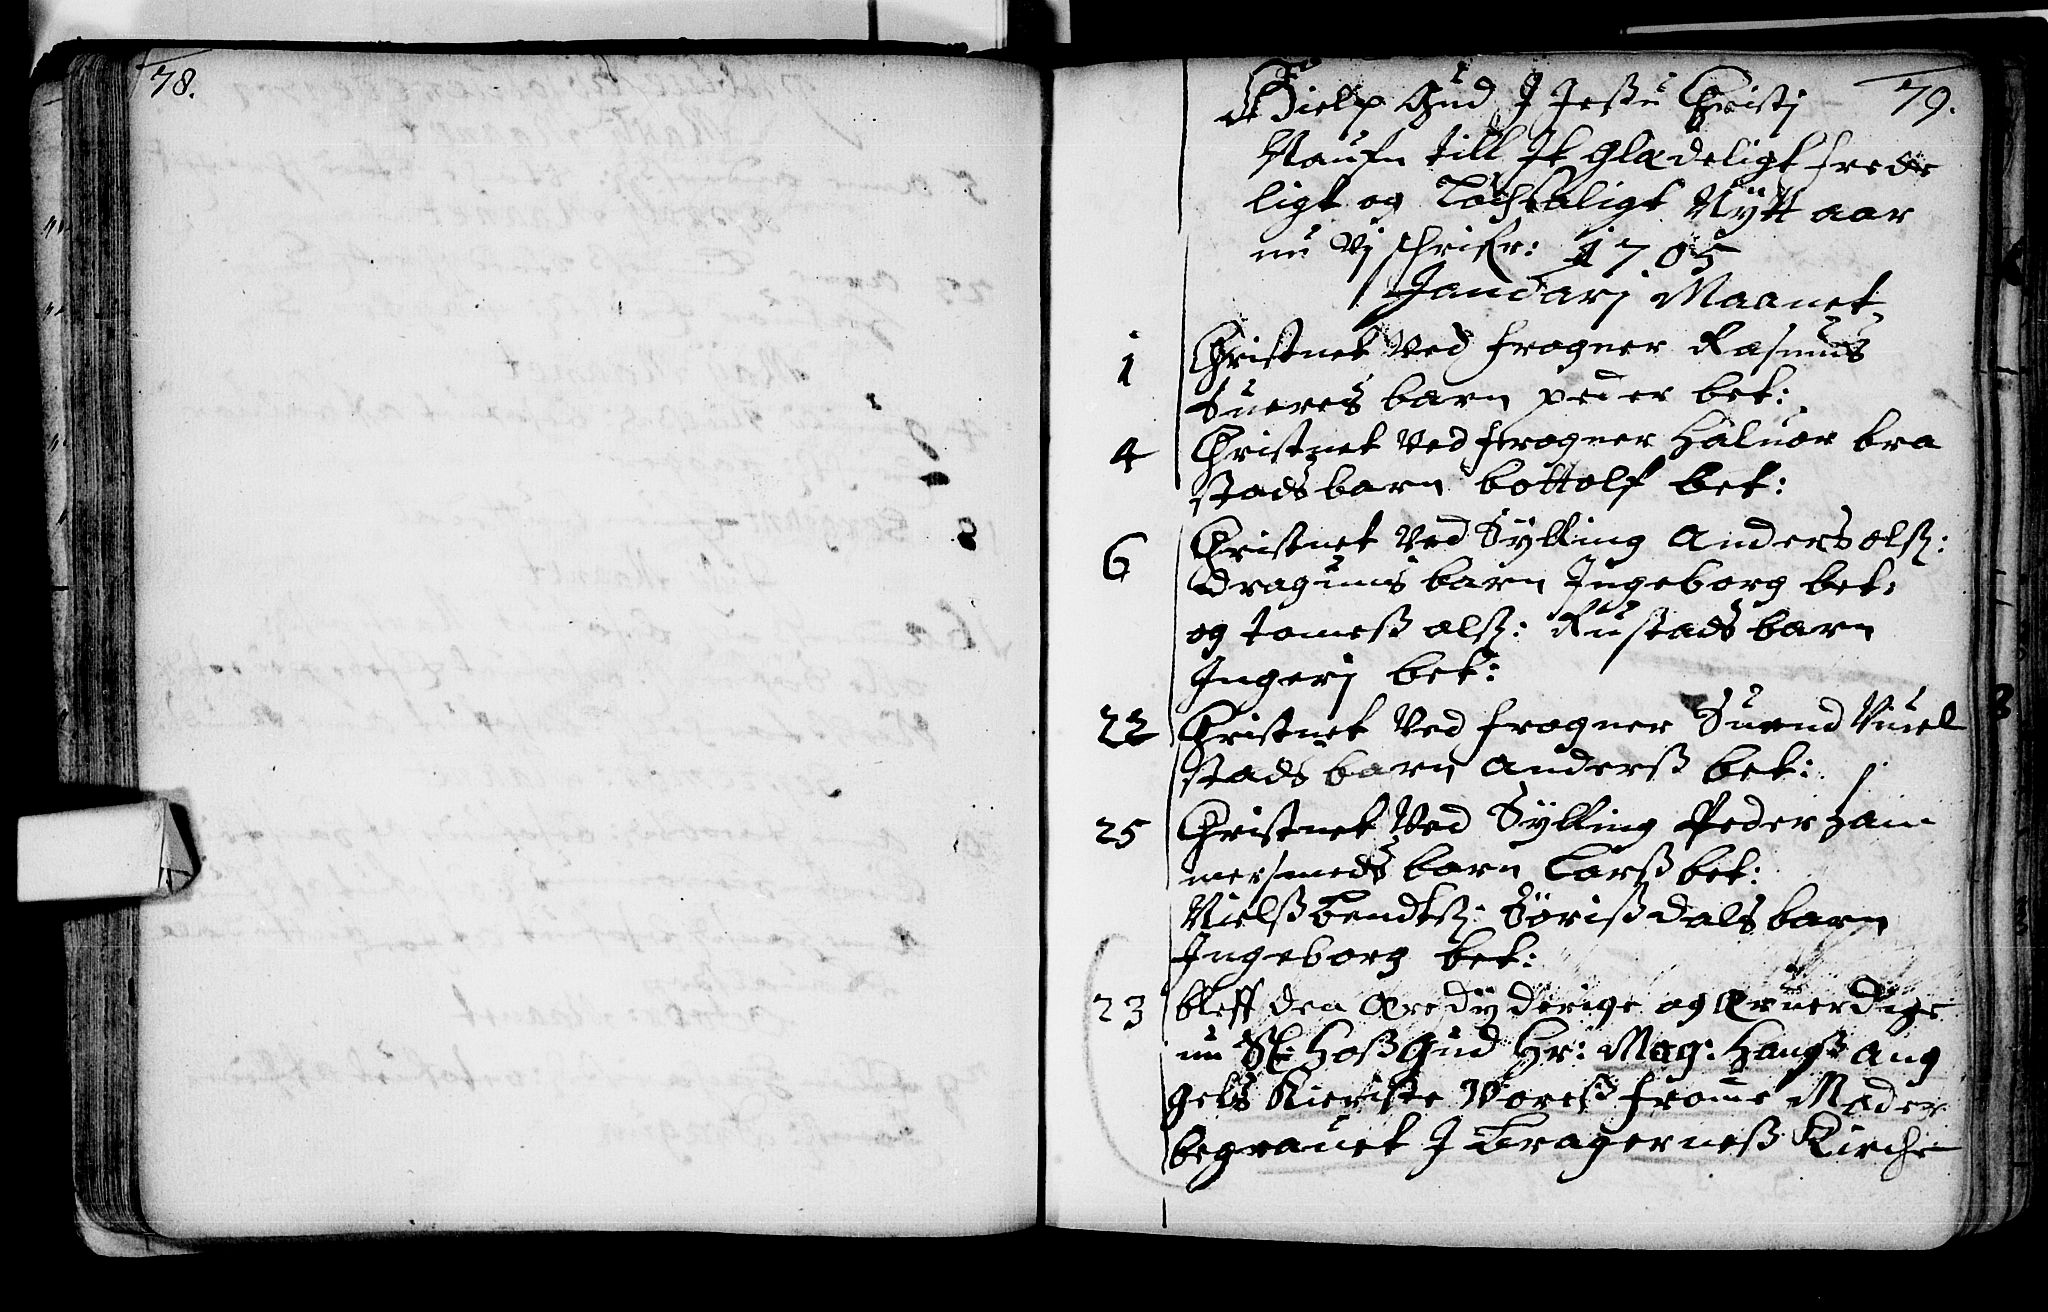 78.
79.
Hielp Gud J Jessu Christj
Naufn till It glædeligt frede
ligt og Løchsaligt Nÿtt aar
nu Vj schrifr: 1705
Januarj Maanet
1 Christnet Ved frogner Rasmus
Sueres barn peder bet:
4 Christnet Ved frogner Haluor bra
stads barn bottolf bet:
6 Christnet Ved Sÿlling Anders olß:
dragums barn Jngeborg bet:
og tomeß olß: Rustads barn
Jngerj bet:
22 Christnet Ved frogner Suend Vuel
stads barn Anderß bet:
25 Christnet Ved Sÿlling Peder Ham
mersmeds barn Larß bet:
Nielß bendtß: Sørißdals barn
Jngeborg bet:
23 bleff den Æredÿderige og Æruerdige
nu Sl: Hoß Gud Hr: Mag: Hanß Ang
gels Kieriste Voreß frome Moder
begrauet J Bragerneß Kirche